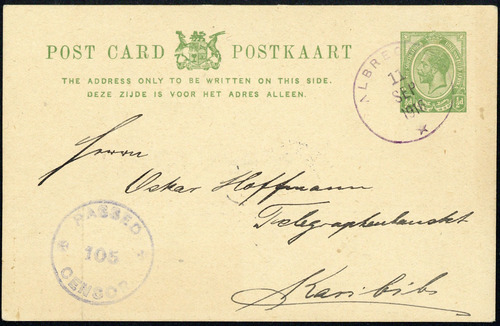 POST CARD POSTKAART
THE ADDRESS ONLY TO BE WRITTEN ON THIS SIDE.
DEZE ZIJDE IS VOOR HET ADRES ALLEEN.
11
SEP
1916
Herrn
Oskar Hoffmann
Karibib
PASSED
105
CENSOR